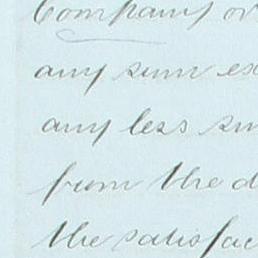 Company or
any sum ex
any less su
from the d
the satisfac